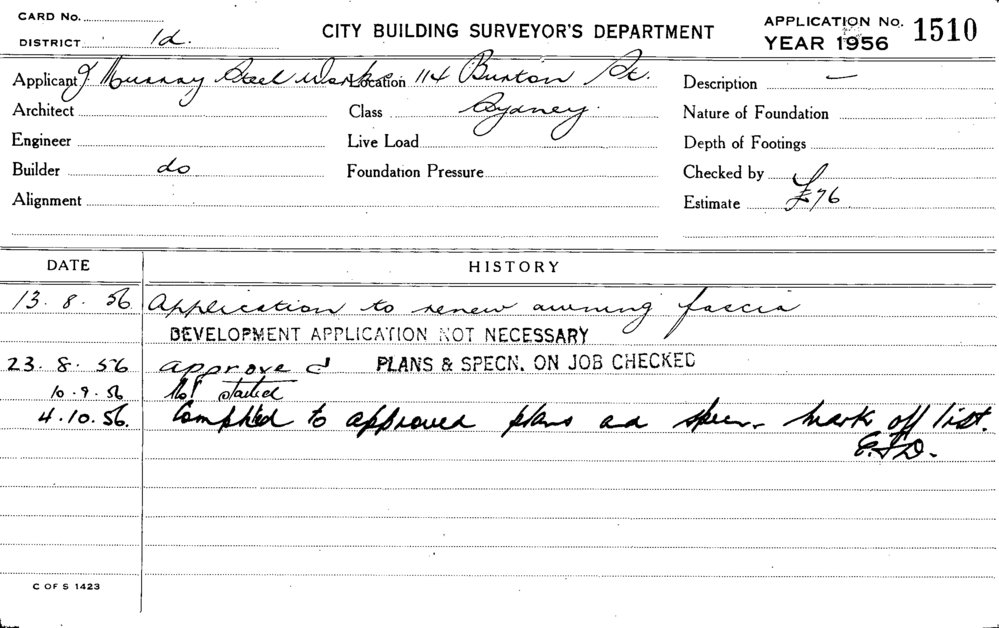 CARD No.
DISTRICT 1d.
CITY BUILDING SURVEYOR'S DEPARTMENT
APPLICATION No. 1510
YEAR 1956
Applicant J Murray Steel Works Location 114 Burton St. Description —
Architect Class Sydney. Nature of Foundation
Engineer Live Load Depth of Footings
Builder do Foundation Pressure Checked by
Alignment Estimate £76
DATE HISTORY
13. 8. 56 Application to renew awning fascia
DEVELOPMENT APPLICATION NOT NECESSARY
23. 8. 56 approved PLANS & SPECN. ON JOB CHECKED
10. 9. 56 Not started
4. 10. 56. Completed to approved plans and specn. Mark off list.
C OF S 1423